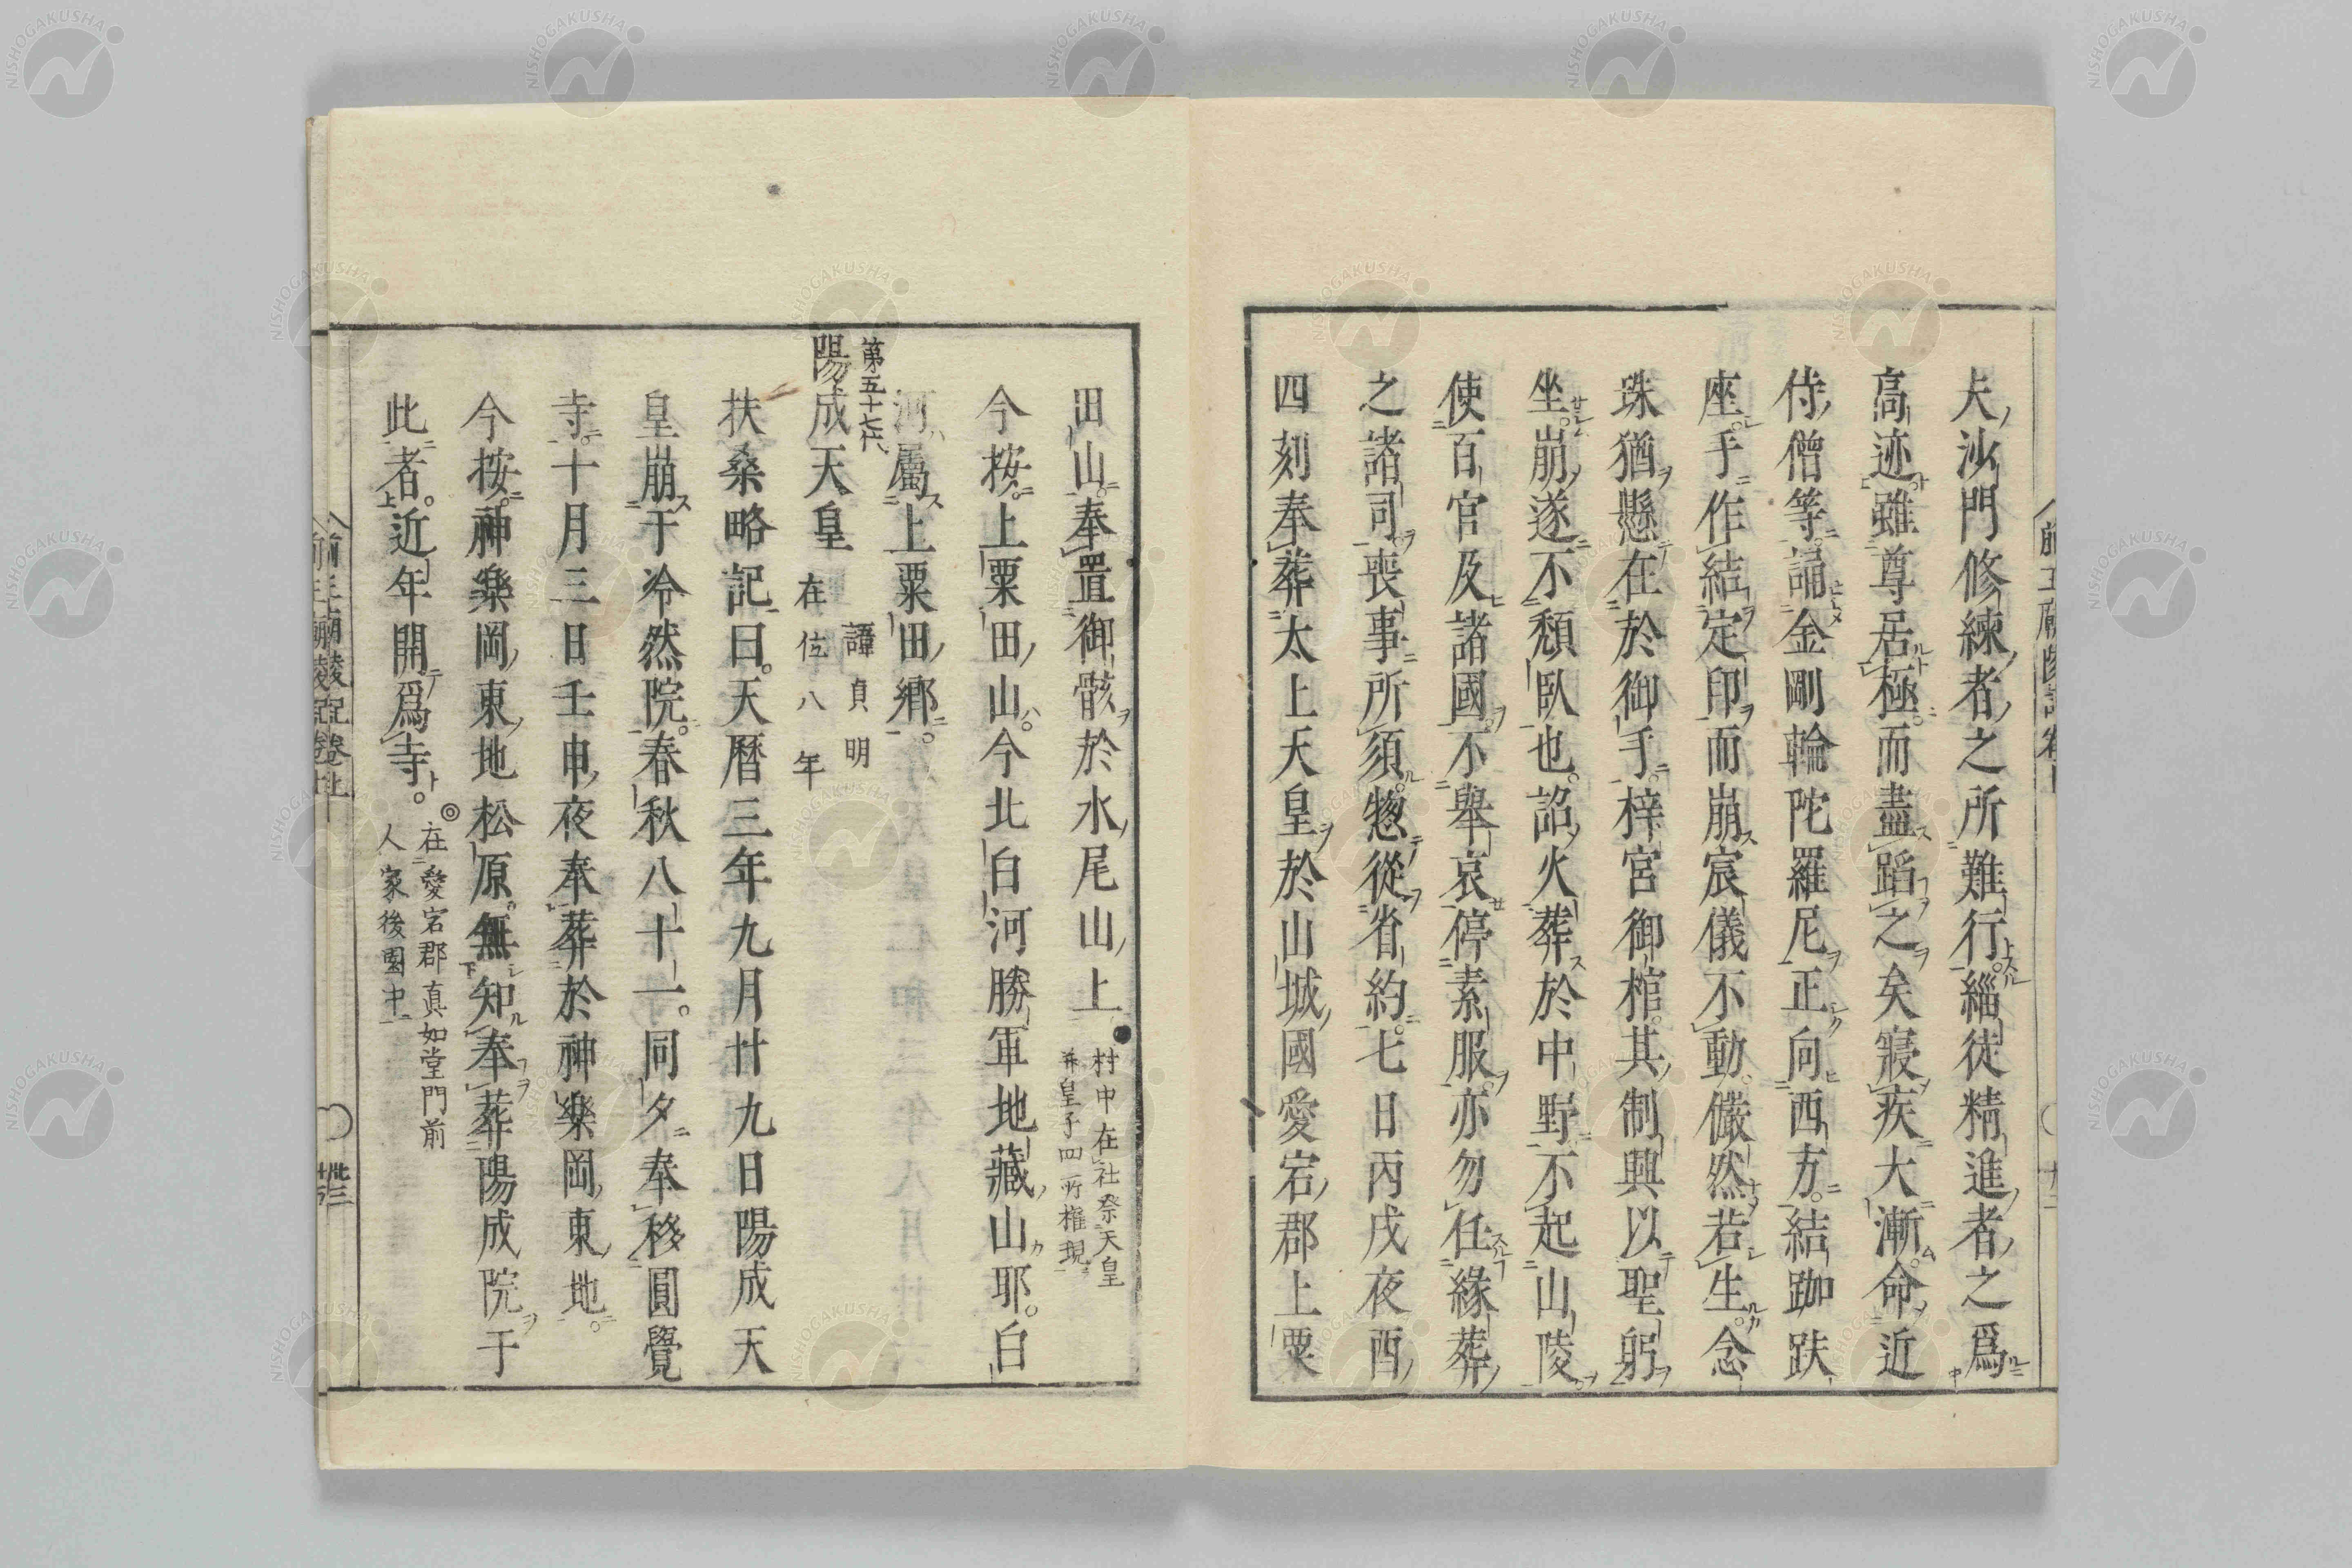 夫沙門修練者之所難行緇徒精進者之爲
高迹雖尊居極而盡蹈之矣寢疾大漸命近
侍僧等誦金剛輪陀羅尼正向西方結跏趺
座手作結定印而崩宸儀不動儼然若生念
珠猶懸在於御手梓宮御棺其制興以聖躬
坐崩遂不頽臥也詔火葬於中野不起山陵
使百官及諸國不舉哀停素服亦勿任緣葬
之諸司喪事所須惣從省約七日丙戌夜酉
四刻奉葬太上天皇於山城國愛宕郡上粟
田山奉置御骸於水尾山上●村中在社祭天皇
并皇子四所權現
今按上粟田山今北白河勝軍地藏山耶。白
河屬上粟田鄉。
第五十七代
陽成天皇
諱貞明
在位八年
扶桑略記曰。天曆三年九月廿九日陽成天
皇崩于冷然院。春秋八十一。同夕奉移圓覺
寺。十月三日壬申夜奉葬於神樂岡東地。
今按。神樂岡東地松原無知奉葬陽成院于
此者。近年開爲寺。◎在愛宕郡真如堂門前
人家後園中
前王廟陵記卷上
NISHOGAKUSHA